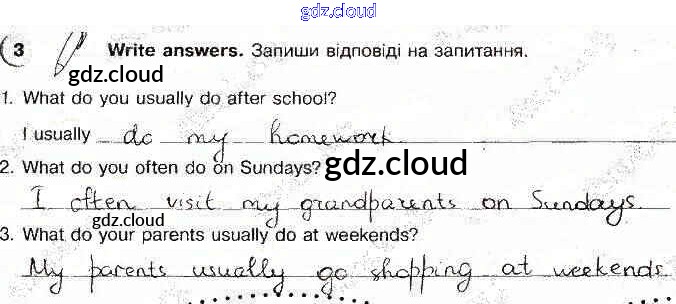 gdz.cloud
3 Write answers. Запиши відповіді на запитання.
gdz.cloud
1. What do you usually do after school?
I usually do my homework
2. What do you often do on Sundays? gdz.cloud
I often visit my grandparents on Sundays.
gdz.cloud
3. What do your parents usually do at weekends?
My parents usually go shopping at weekends.